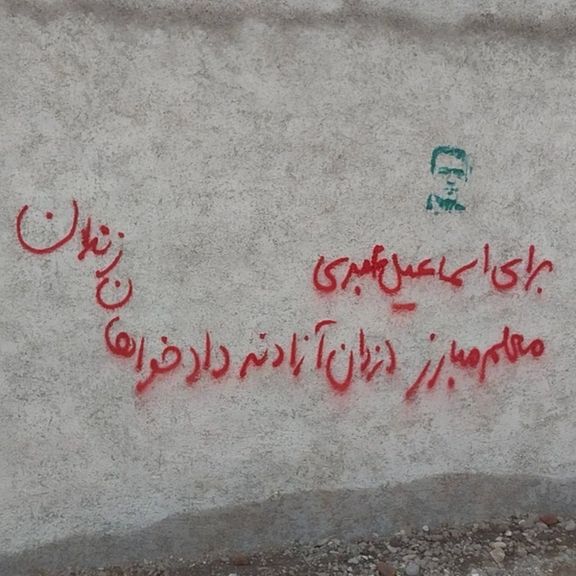 برای اسماعیل عبدی
معلم مبارز دزدان آزادند دادخواهان زندان